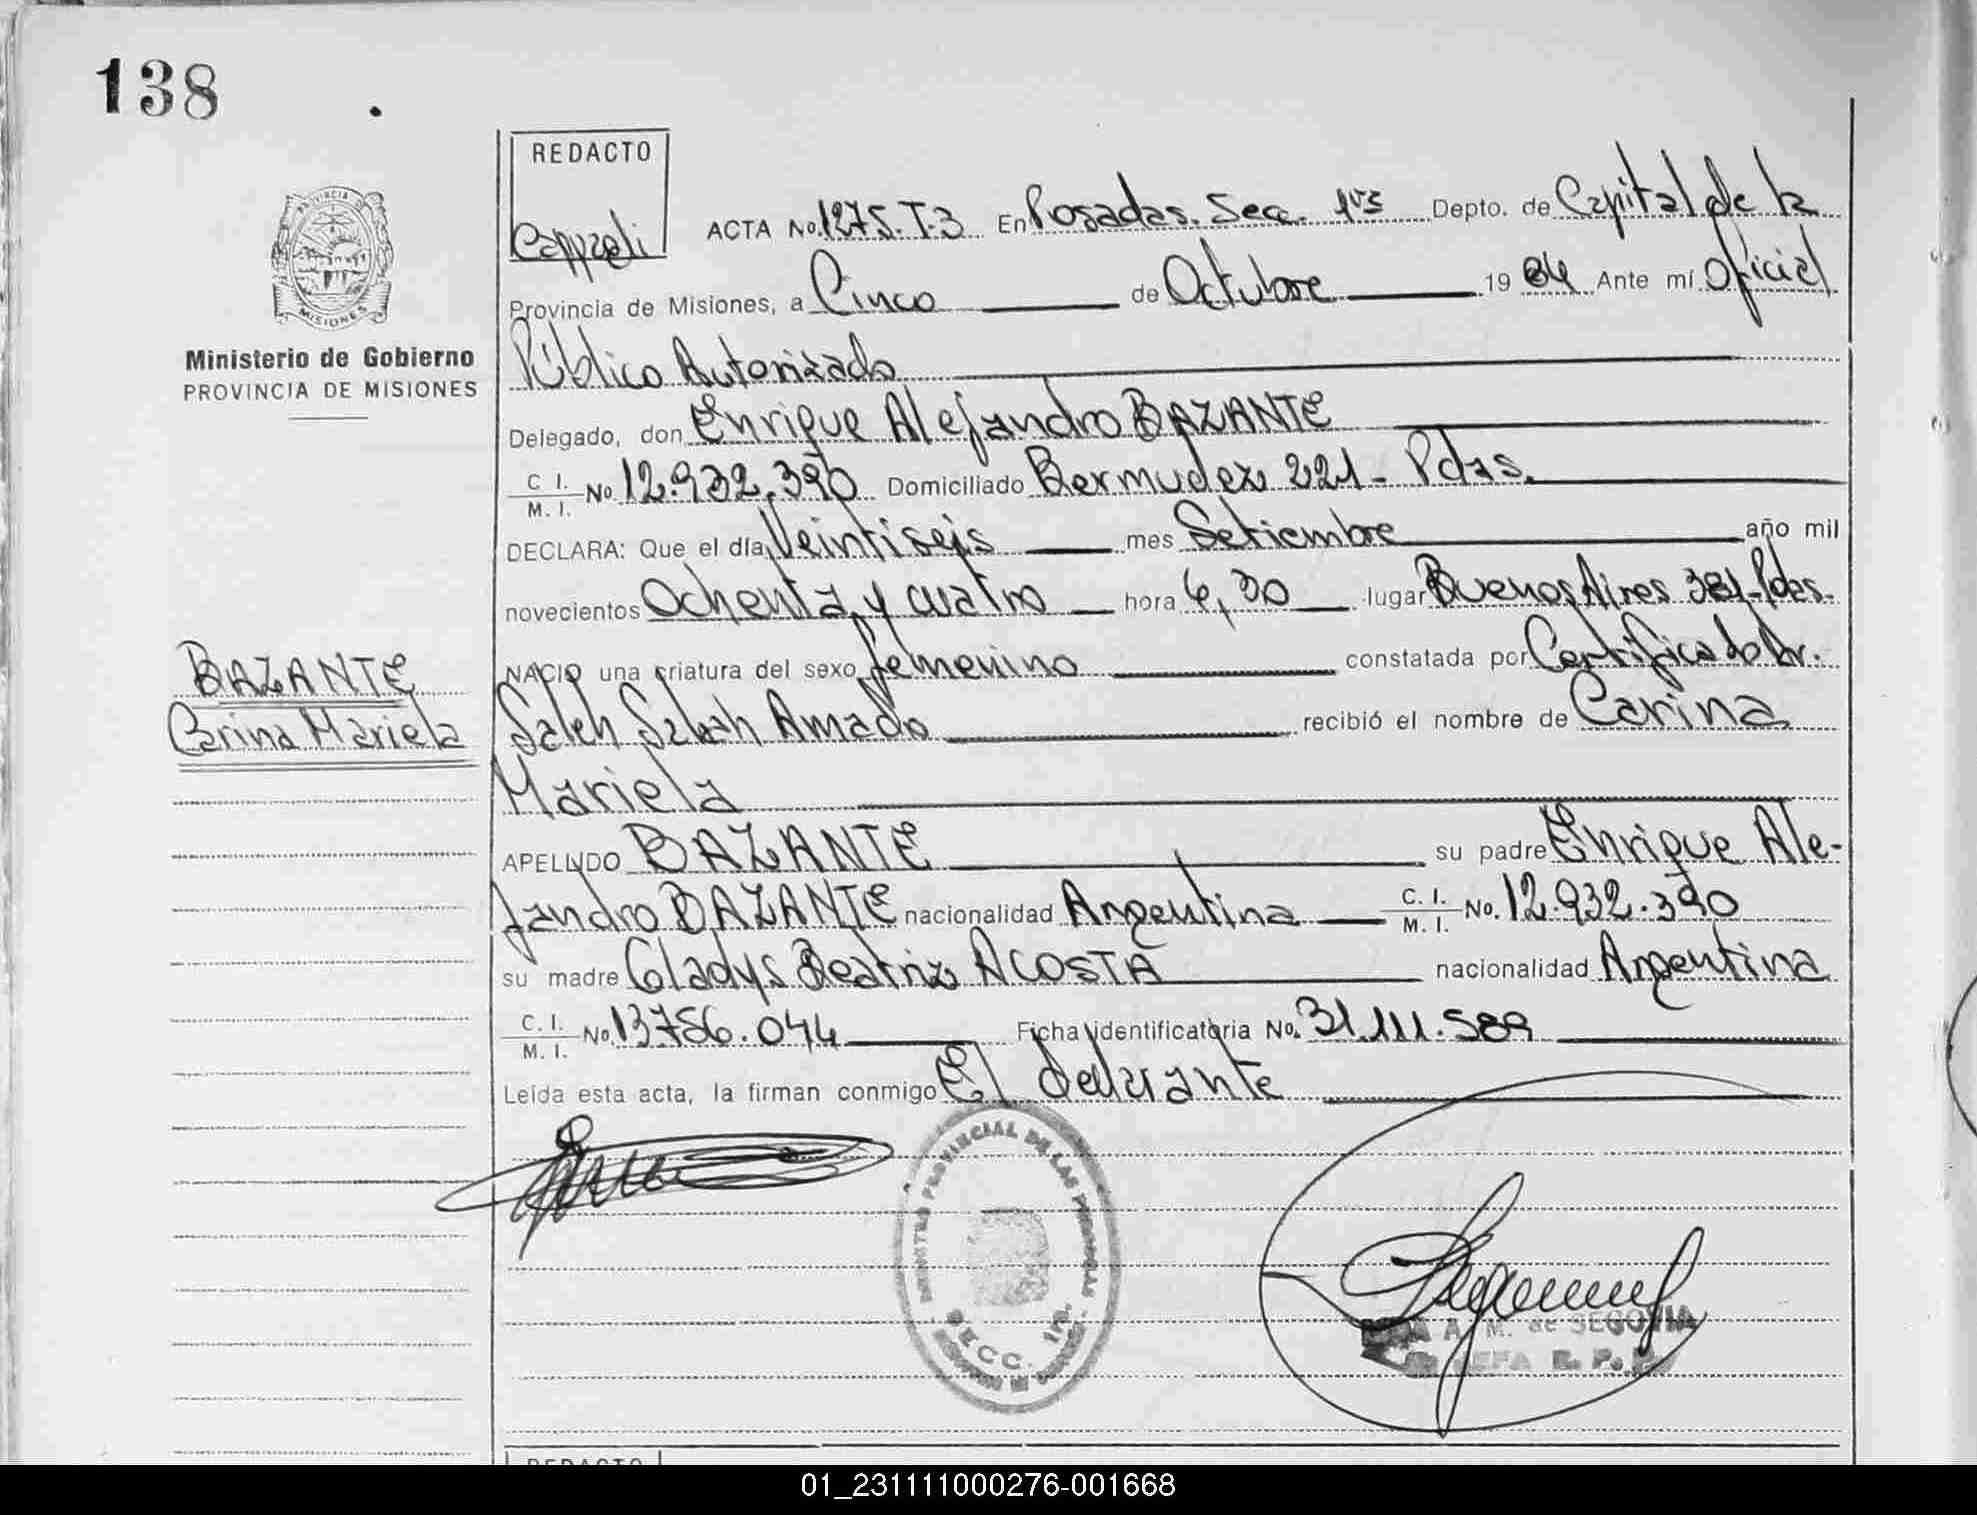 138
REDACTO
Cappzeli
ACTA No. 1275. T-3 En Posadas. Secc. 1ra Depto. de Capital de la
Provincia de Misiones, a Cinco de Octubre 19 84 Ante mí Oficial
Público Autorizado
Delegado, don Enrique Alejandro BAZANTE
C. I. M. I. No 12.932.390 Domiciliado Bermudez 221 - Pdas.
DECLARA: Que el día Veintiseis mes Setiembre año mil
novecientos Ochenta y cuatro hora 6,30 lugar Buenos Aires 381-Pdas.
NACIO una criatura del sexo femenino constatada por Certificado Dr.
Saleh Sabah Amado recibió el nombre de Carina
Mariela
APELLIDO BAZANTE su padre Enrique Ale-
jandro BAZANTE nacionalidad Argentina C. I. M. I. No. 12.932.390
su madre Gladys Beatriz ACOSTA nacionalidad Argentina
C. I. M. I. No 13.756.044 Ficha identificatoria No. 31.111.589
Leída esta acta, la firman conmigo El declarante
PROVINCIA DE MISIONES
Ministerio de Gobierno
PROVINCIA DE MISIONES
BAZANTE
Carina Mariela
PROVINCIAL DE LAS PERSONAS
SECC. 1ra.
A. M. de SEGOVIA
JEFA
REDACTO
01_231111000276-001668